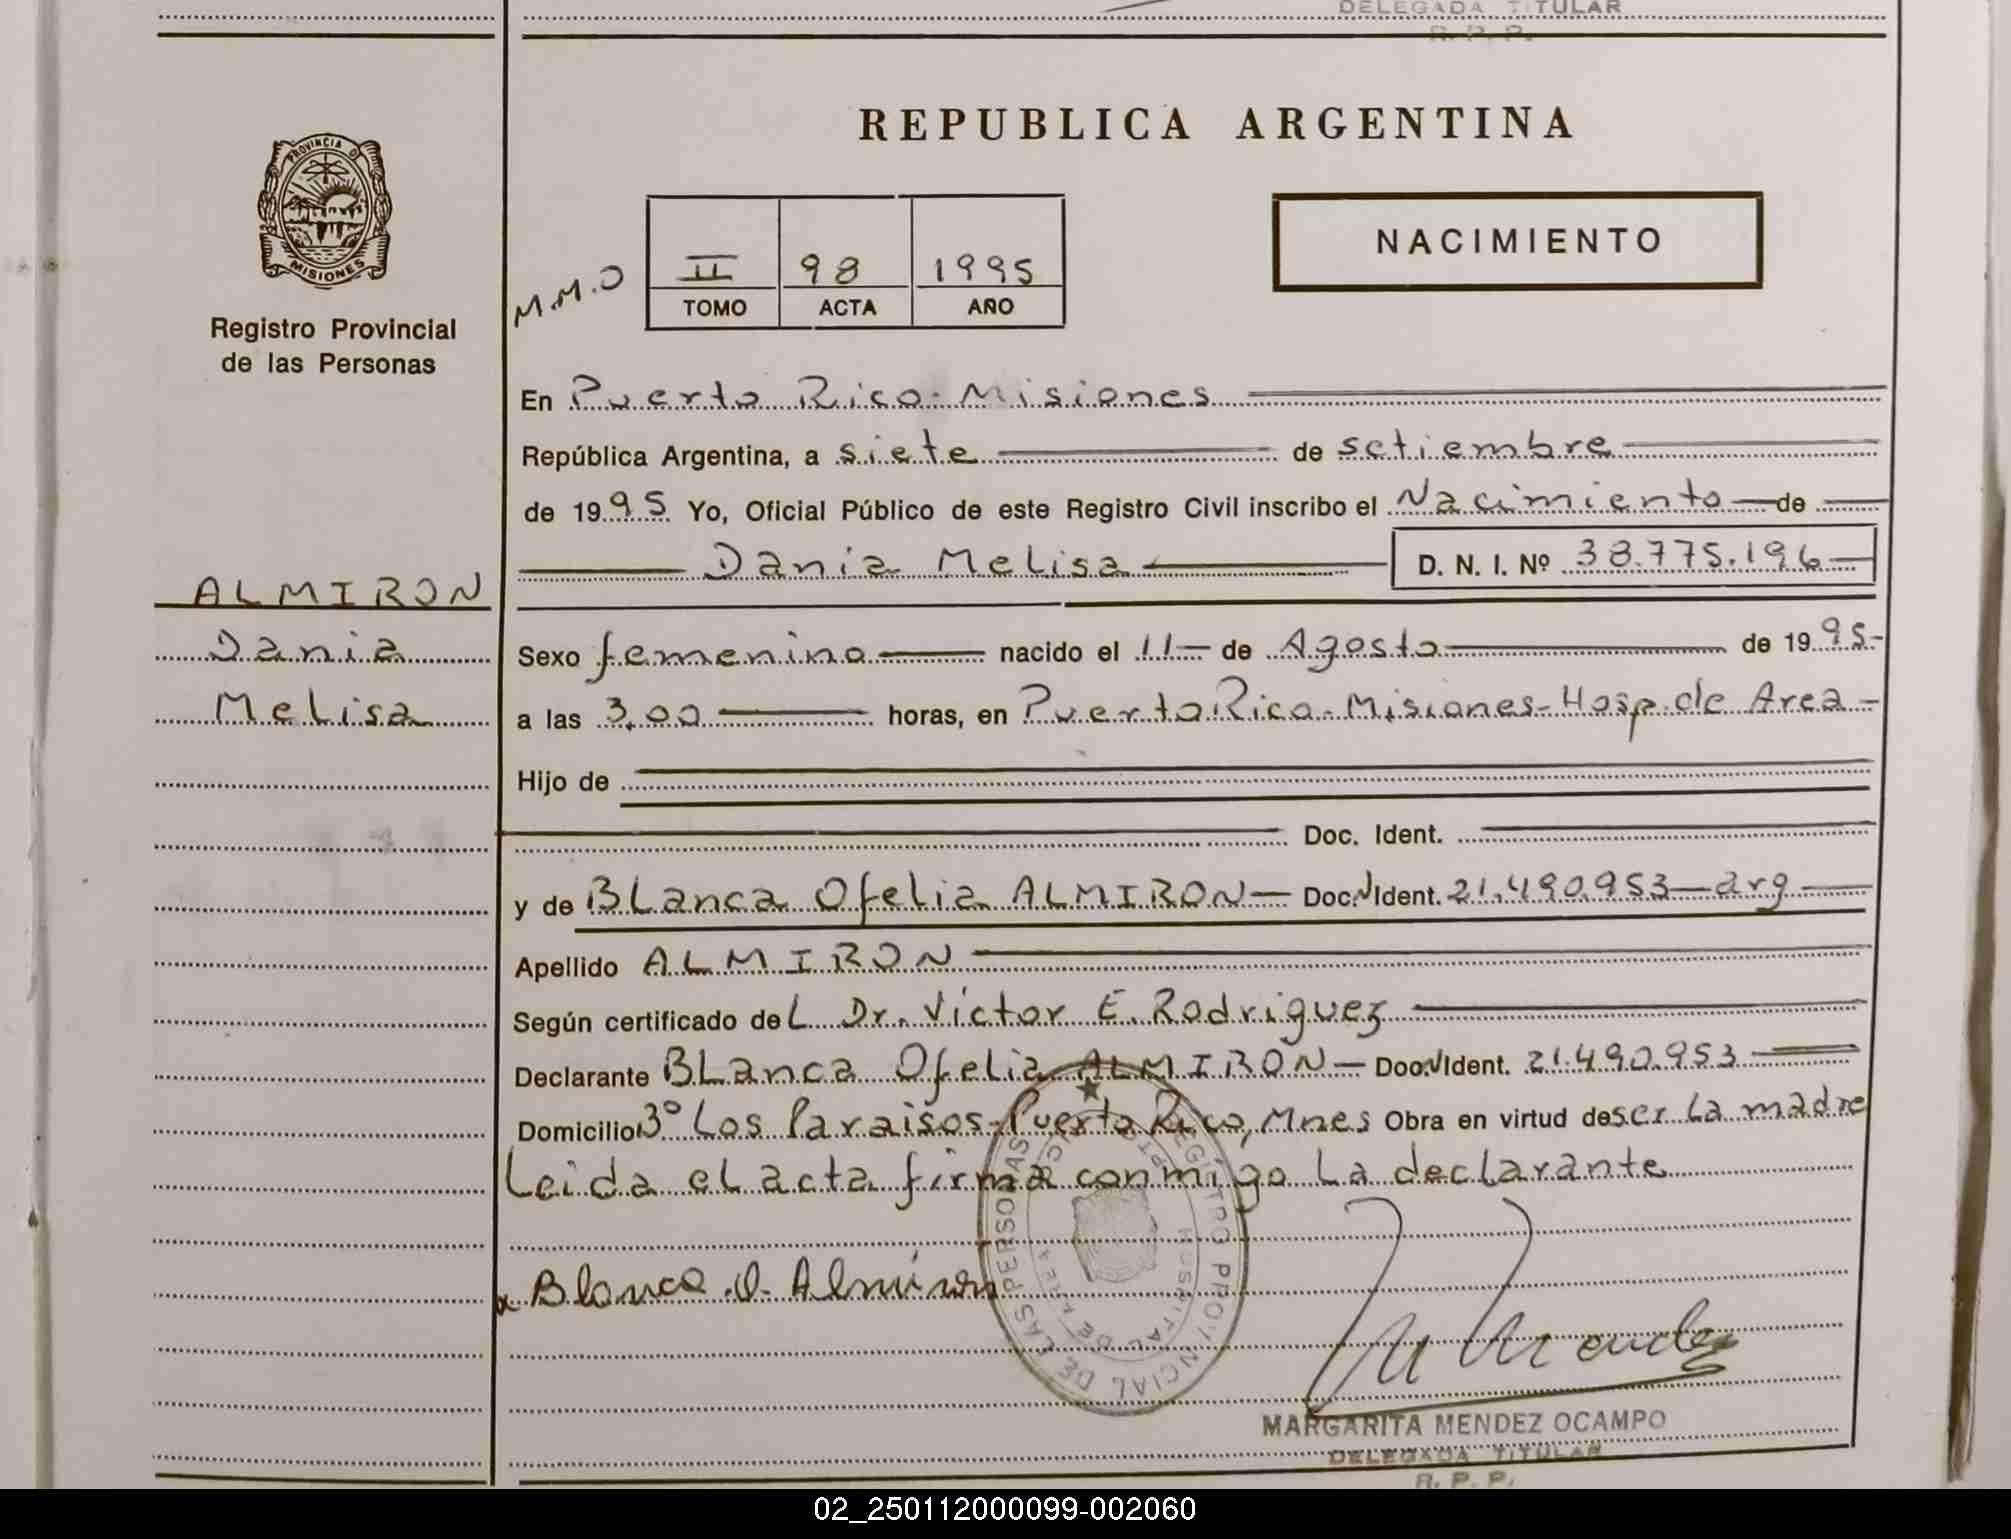 DELEGADA TITULAR
R. P. P.
REPUBLICA ARGENTINA
PROVINCIA D
MISIONES
Registro Provincial
de las Personas
M.M.O
II 98 1995
TOMO ACTA AÑO
NACIMIENTO
En Puerto Rico-Misiones
República Argentina, a siete de setiembre
de 1995 Yo, Oficial Público de este Registro Civil inscribo el Nacimiento de
Dania Melisa D. N. I. Nº 38.775.196
ALMIRON
Dania
Melisa
Sexo femenino nacido el 11 de Agosto de 1995-
a las 3,00 horas, en Puerto Rico-Misiones-Hosp. de Area-
Hijo de
Doc. Ident.
y de BLanca Ofelia ALMIRON- Doc. Ident. 21.490.953-arg
Apellido ALMIRON
Según certificado deL Dr. Víctor E. Rodriguez
Declarante BLanca Ofelia ALMIRON- Doc. Ident. 21.490.953
Domicilio 3º Los Paraisos-Puerto Rico, Mnes Obra en virtud de ser La madre
Leida eL acta firma conmigo La declarante
Blanca O. Almirón
REGISTRO PROVINCIAL DE LAS PERSONAS
HOSPITAL DE AREA
M Mendez
MARGARITA MENDEZ OCAMPO
DELEGADA TITULAR
R. P. P.
02_250112000099-002060